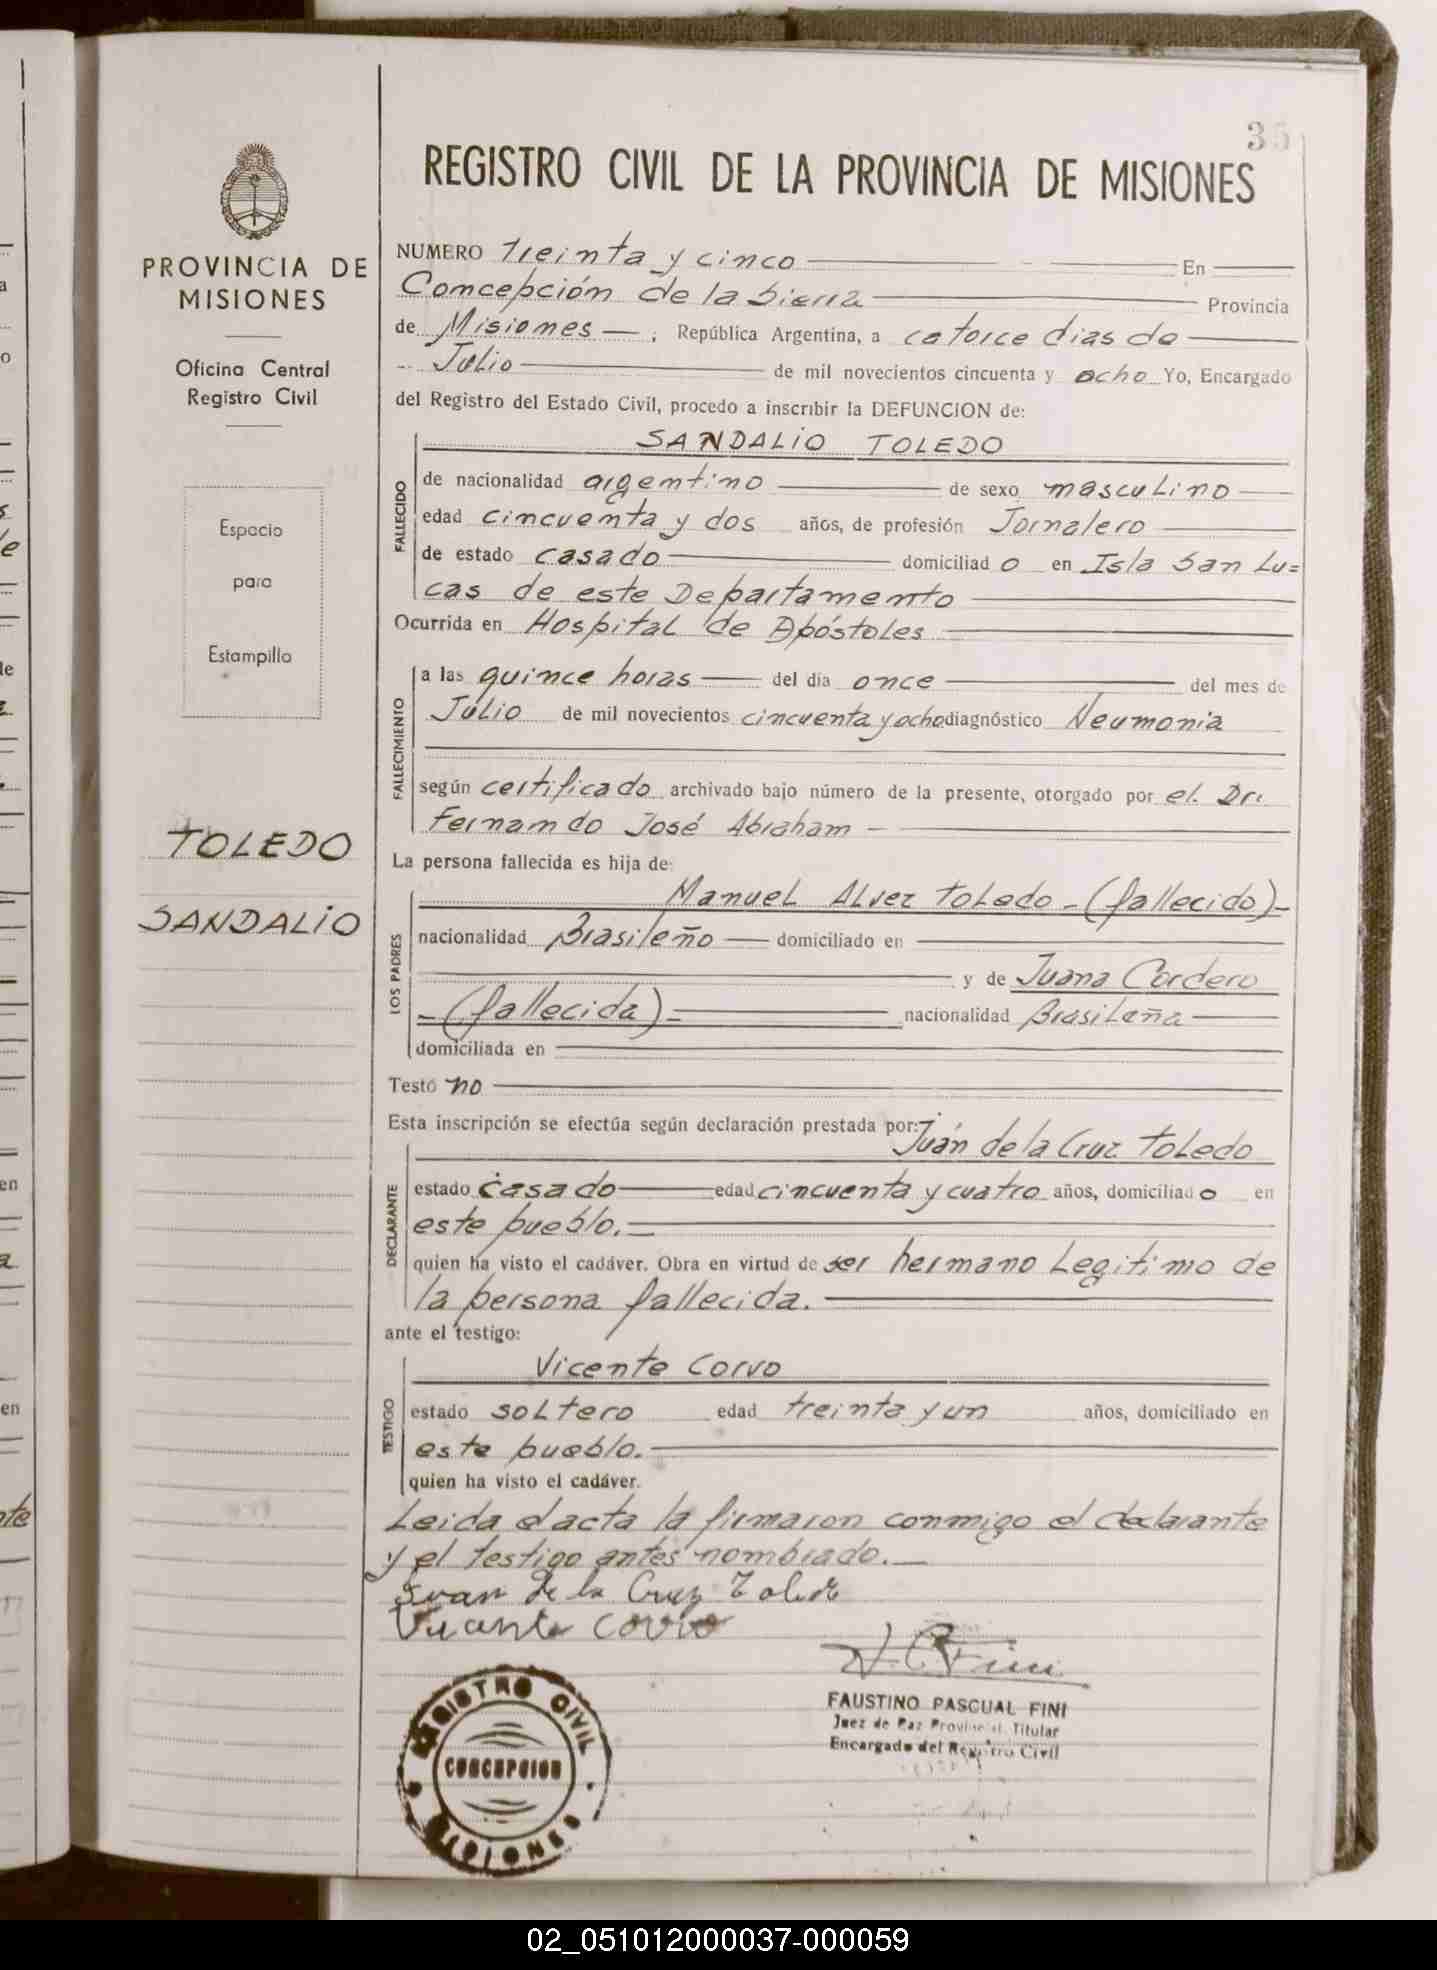 35
REGISTRO CIVIL DE LA PROVINCIA DE MISIONES
PROVINCIA DE
MISIONES
Oficina Central
Registro Civil
Espacio
para
Estampilla
TOLEDO
SANDALIO
NUMERO Treinta y cinco En
Concepción de la Sierra Provincia
de Misiones ; República Argentina, a catorce dias de
Julio de mil novecientos cincuenta y ocho Yo, Encargado
del Registro del Estado Civil, procedo a inscribir la DEFUNCION de:
SANDALIO TOLEDO
FALLECIDO
de nacionalidad argentino de sexo masculino
edad cincuenta y dos años, de profesión Jornalero
de estado casado domiciliad o en Isla San Lu=
cas de este Departamento
Ocurrida en Hospital de Apóstoles
FALLECIMIENTO
a las quince horas del día once del mes de
Julio de mil novecientos cincuenta y ocho diagnóstico Neumonia
según certificado archivado bajo número de la presente, otorgado por el Dr.
Fernando José Abraham
La persona fallecida es hija de:
LOS PADRES
Manuel Alvez Toledo - (fallecido) -
nacionalidad Brasileño domiciliado en
y de Juana Cordero
- (fallecida) - nacionalidad Brasileña
domiciliada en
Testó no
Esta inscripción se efectúa según declaración prestada por: Juán de la Cruz Toledo
DECLARANTE
estado casado edad cincuenta y cuatro años, domiciliad o en
este pueblo.
quien ha visto el cadáver. Obra en virtud de ser hermano Legitimo de
la persona fallecida.
ante el testigo:
TESTIGO
Vicente Corvo
estado soltero edad treinta y un años, domiciliado en
este pueblo.
quien ha visto el cadáver.
Leida el acta la firmaron conmigo el declarante
y el testigo antes nombrado.
Juan de la Cruz Toledo
Vicente Corvo
FAUSTINO PASCUAL FINI
Juez de Paz Provincial Titular
Encargado del Registro Civil
REGISTRO CIVIL
CONCEPCION
MISIONES
02_051012000037-000059